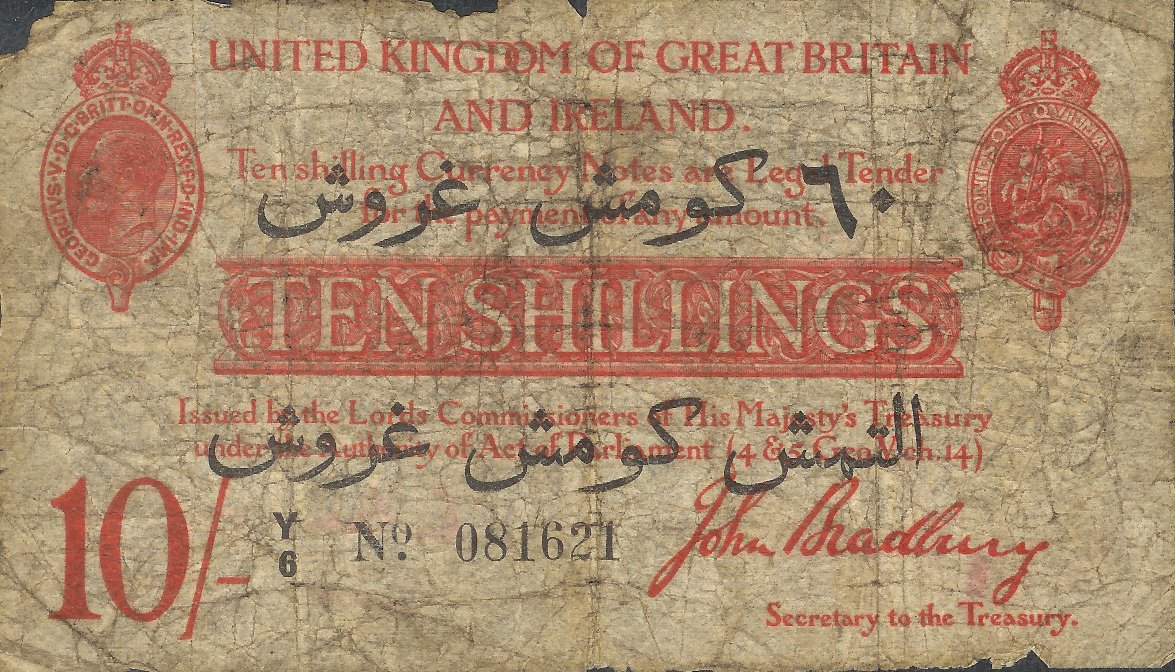 UNITED KINGDOM OF GREAT BRITAIN
AND IRELAND.
GEORGIVS·V·D·G·BRITT·OMN·REX·F·D·IND·IMP
Ten shilling Currency Notes are Legal Tender
٦٠ كومش غروش
for the payment of any amount.
TEN SHILLINGS
Issued by the Lords Commissioners of His Majesty's Treasury
التمش كومش غروش
under the Authority of Act of Parliament (4 & 5 Geo.V ch.14)
10/-
Y/6 Nº 081621
John Bradbury
Secretary to the Treasury.